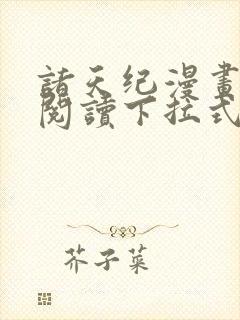 諸天纪漫畫
閱讀下拉式
芥子菜